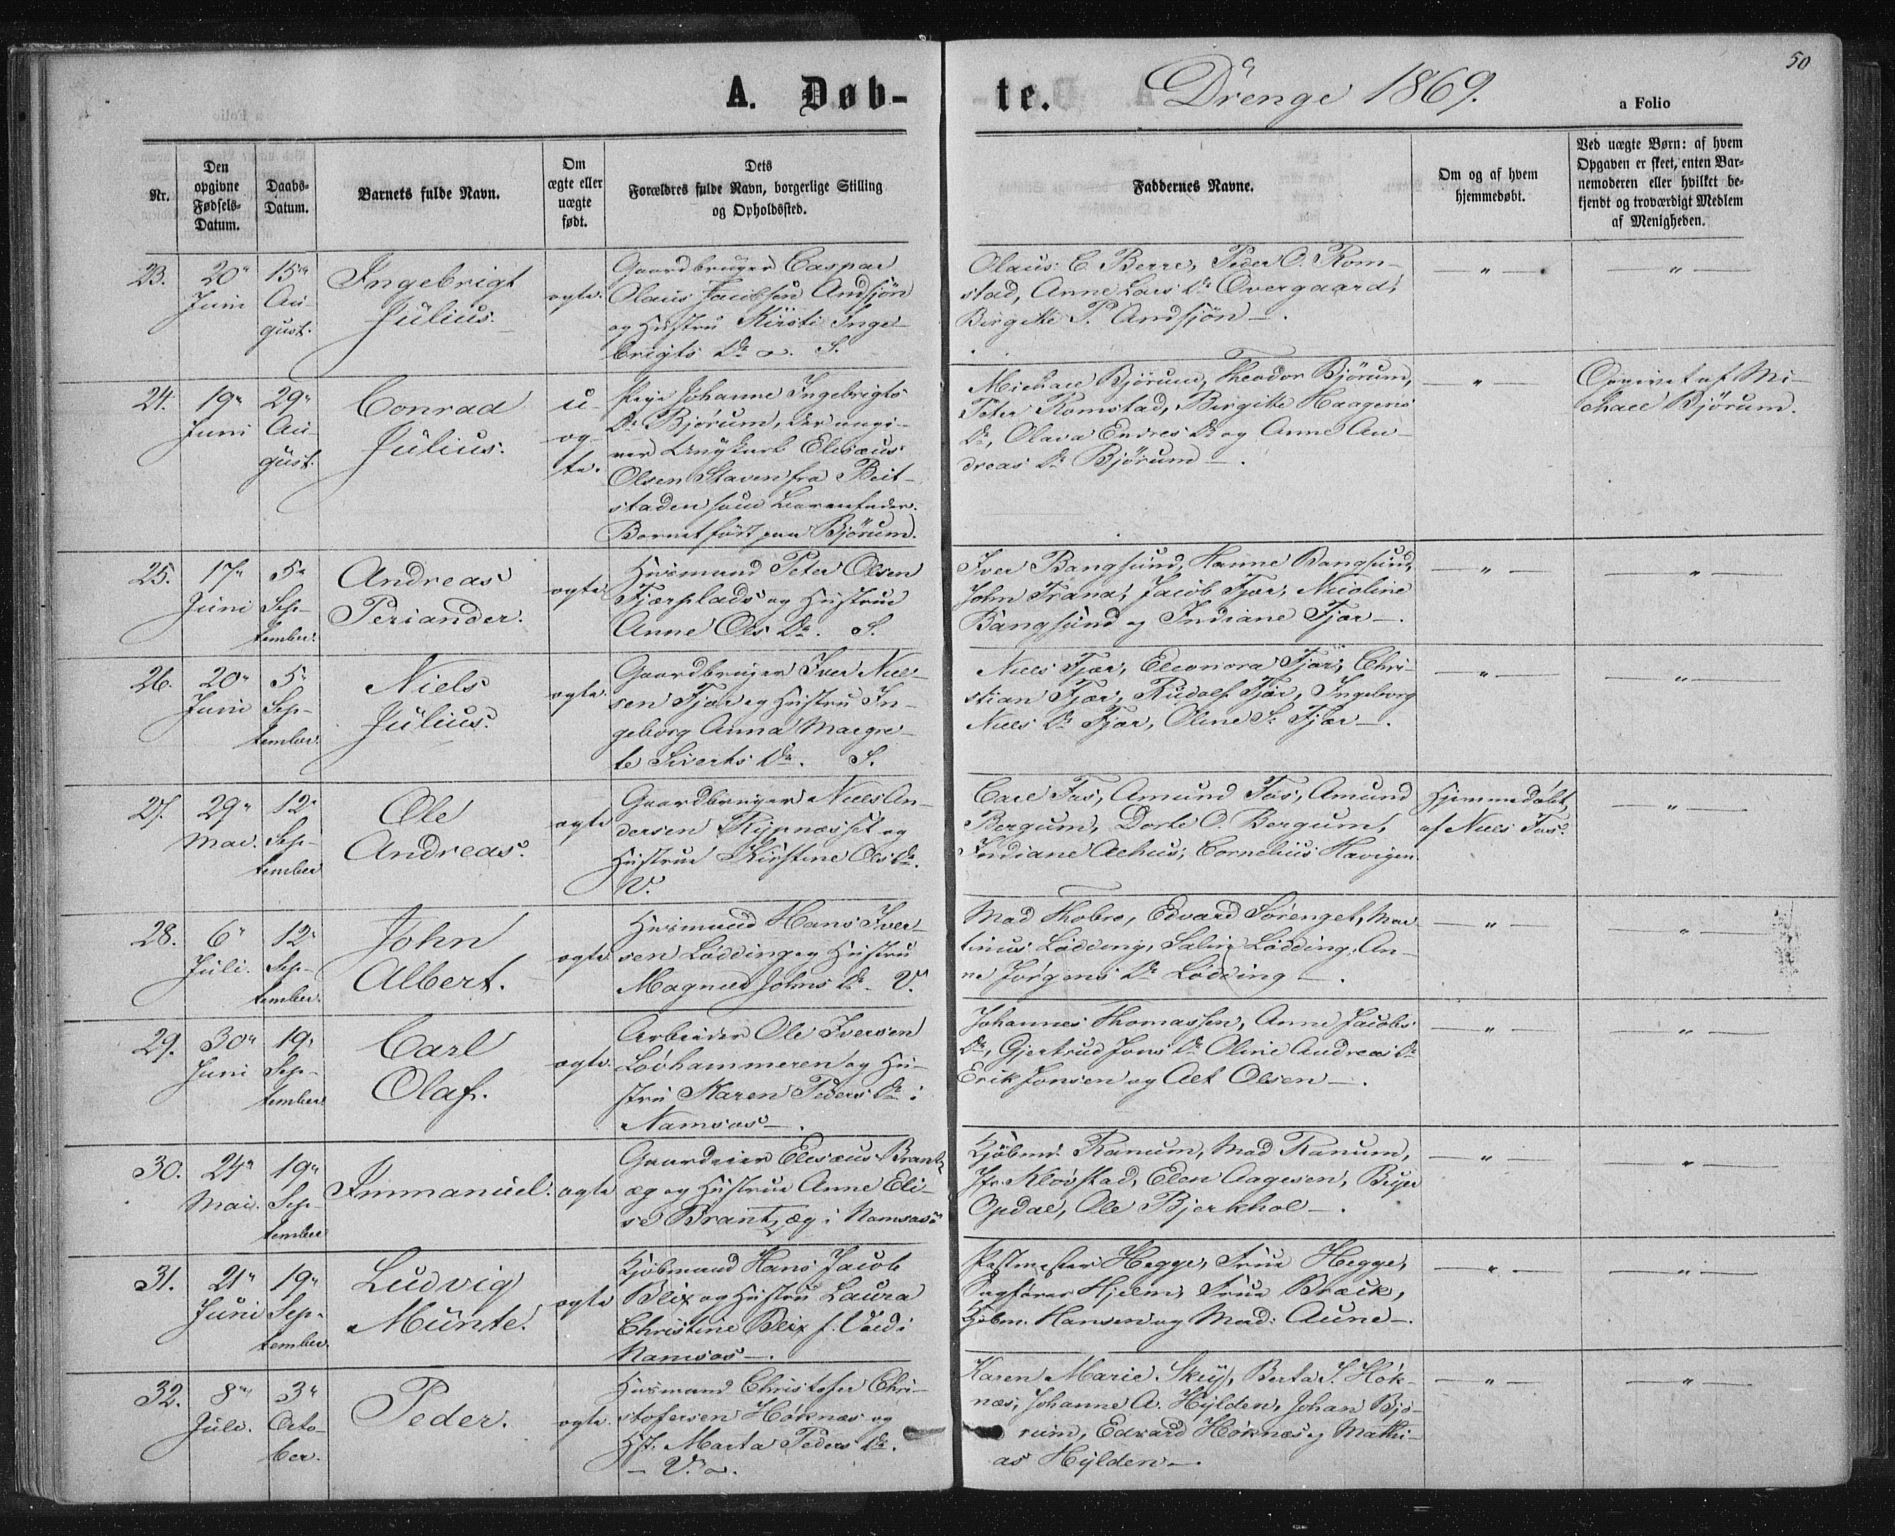 50
A. Døb-
te. Drenge 1869.
a Folio
Nr.
Den opgivne Fødsels-Datum.
Daabs-Datum.
Barnets fulde Navn.
Om ægte eller uægte født.
Dets
Forældres fulde Navn, borgerlige Stilling
og Opholdssted.
Faddernes Navne.
Om og af hvem
hjemmedøbt.
Ved uægte Børn: af hvem
Opgaven er skeet, enten Bar-
nemoderen eller hvilket be-
kjendt og troværdigt Medlem
af Menigheden.
23. 20 Juni 15 August. Ingebrigt Julius. ægte.
Gaardbruger Caspar
Olaus Jacobsen Andsjön
og Hustru Kirsti Inge-
brigts Dr. S.
Olaus C. Berre, Peder O. Rom-
stad, Anne Lars Dr Overgaard,
Birgitte P. Andsjön.
24. 19 Juni 29 August. Conrad Julius. uægte.
Pige Johanne Ingebrigts
Dr Bjørum, der angi-
ver Ungkarl Elisæus
Olsen Staven fra Beit-
staden som Barnefader.
Barnet født paa Bjørum.
Michael Bjørum, Theodor Bjørum,
Peter Romstad, Birgitte Haagens
Dr, Olava Endres Dr og Anne An-
dreas Dr Bjørum.
Opgivet af Mi-
chael Bjørum.
25. 17 Juni 5 September. Andreas Periander. ægte
Husmand Peter Olsen
Fjærplads og Hustru
Anne Ols Dr. S.
Iver Bangsund, Hanne Bangsund,
John Trana, Jacob Fjær, Nicoline
Bangsund og Indiane Fjær.
26. 20 Juni 5 September. Niels Julius. ægte.
Gaardbruger Iver Niel-
sen Fjær og Hustru In-
geborg Anna Margre-
te Siverts Dr. S.
Niels Fjær, Eleonora Fjær, Chri-
stian Fjær, Rudolf Fjær, Ingeborg
Niels Dr Fjær, Oline S. Fjær.
27. 29 Mai. 12 September Ole Andreas. ægte
Gaardbruger Niels An-
dersen Rypnæsset og
Hustru Kirstine Ols Dr.
V.
Carl Fos, Amund Fos, Amund
Bergum, Dorte O. Bergum,
Indiane Aehus, Cornelius Havigen
Hjemmedøbt
af Niels Fos.
28. 6 Juli. 12 September. John Albert. ægte
Husmand Hans Iver-
sen Lødding og Hustru
Magnild Johns Dr. V.
Mad Thobro, Edvard Sørenget, Mar-
tinus Lødding, Salin Lødding, An-
ne Jørgens Dr Lødding.
29. 30 Juni 19 September Carl Olaf. ægte.
Arbeider Ole Iversen
Løvhammeren og Hu-
stru Karen Peders Dr i
Namsos.
Johannes Thomassen, Anne Jacobs
Dr, Gjertrud Jons Dr Oline Andreas Dr
Erik Jonsen og Alet Olsen.
30. 24 Mai. 19 September Immanuel. ægte
Gaardeier Elisæus Brantz-
æg og Hustru Anne Eli-
se Brantzæg i Namsos
Kjöbm. Ranum, Mad Ranum,
Jfr. Kløvstad, Elen Aagesen, Birger
Opdal, Ole Bjerkhol.
31. 21 Juni 19 September. Ludvig Münte. ægte
Kjöbmand Hans Jacob
Blix og Hustru Laura
Christine Blix f. Vold i
Namsos.
Postmester Hegge, Frue Hegge,
Sagfører Hjelm, Frue Bræck,
Kjöbm. Hansen og Mad: Aune.
32. 8 Juli. 3 October. Peder. ægte.
Husmand Christofer Chri-
stofersen Høknæs og
Hst. Marta Peders Dr.
V.
Karen Marie Sky, Berta S. Høk-
næs, Johanne A. Hylden, Johan Bjø-
rum, Edvard Høknæs og Mathi-
as Hylden.